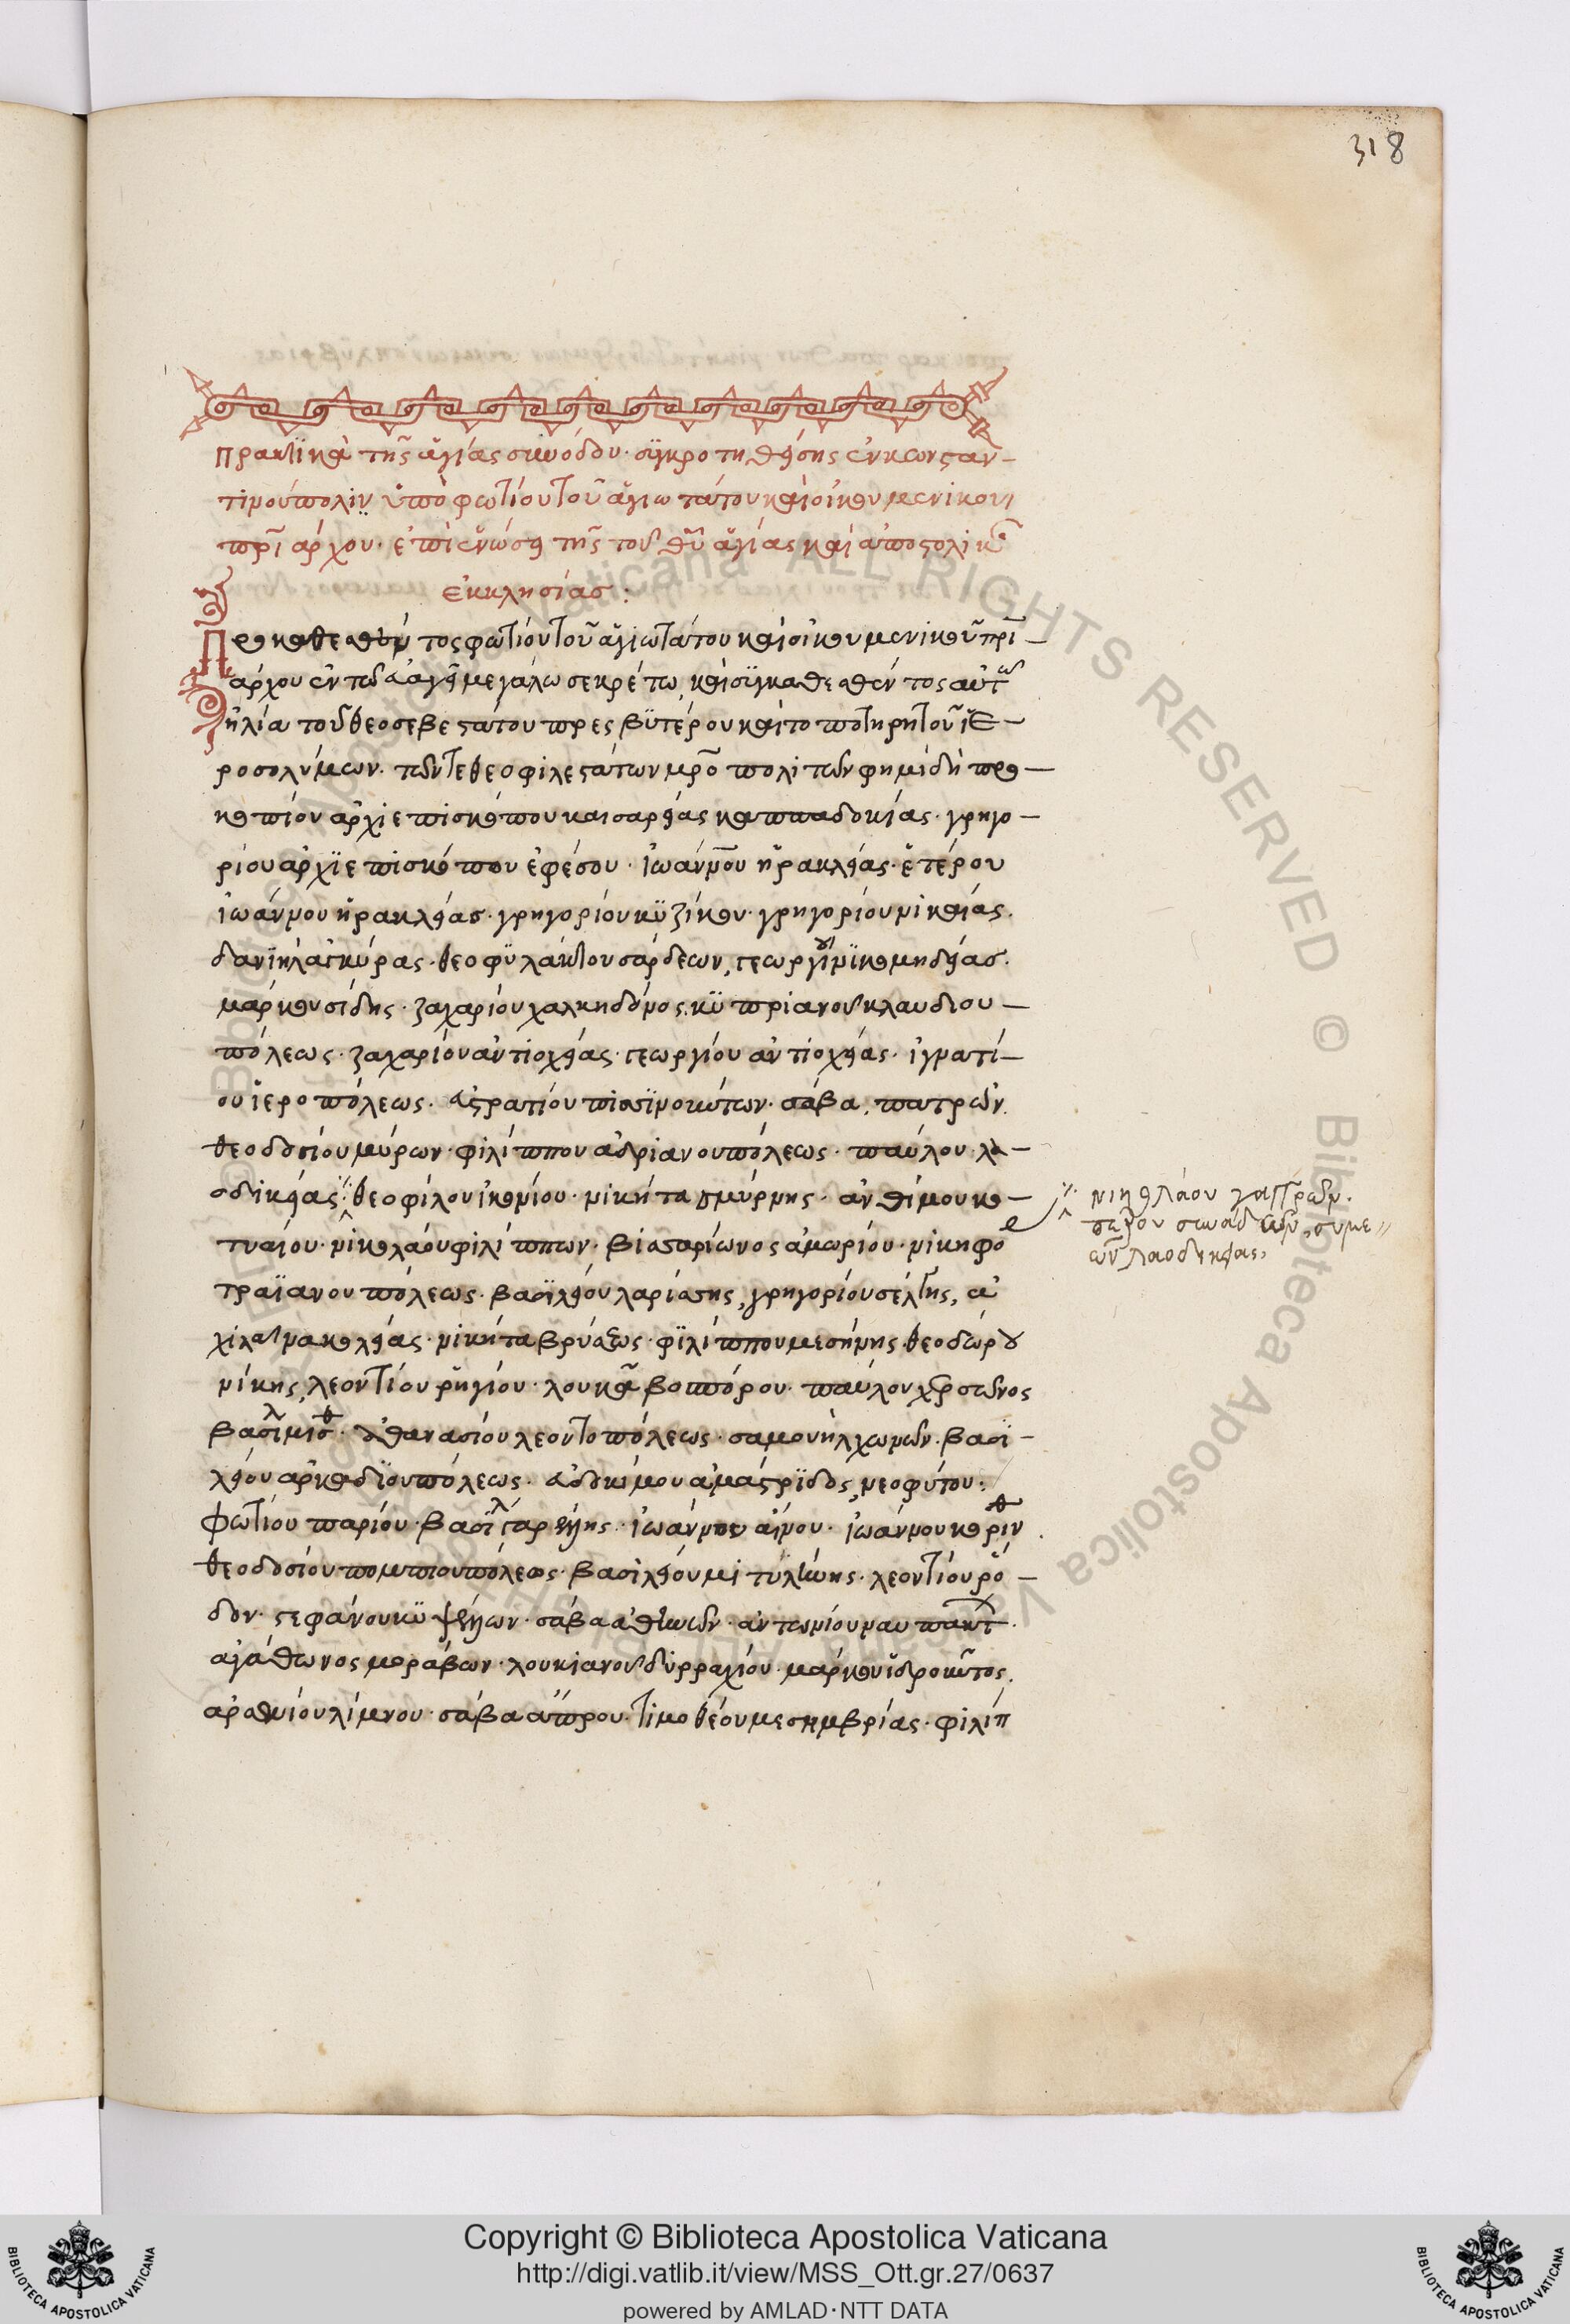 318
πρακτϊκὰ τῆς ἁγίας συνόδου· συγκροτηθείσης ἐν κωνσταν–
τινουπόλιν ὑπὸ φωτίου τοῦ ἁγιωτάτου καὶ οἰκουμενικοῦ
πρι άρχου· ἐπὶ ἑνώσει τῆς τοῦ θυ ἁγίας καὶ ἀποστολικῆς
ἐκκλησίας :
Προκαθεσθέντος φωτίου τοῦ ἁγιωτάτου καὶ οἰκουμενικοῦ πρι–
άρχου ἐν τῶ εὐαγεῖ μεγάλω σεκρέτω, καὶ συγκαθεσθέντος αὐτῶ
ἠλία τοῦ θεοσεβεστάτου πρεσβυτέρου καὶ τοποτηρητοῦ ἱε–
ροσολύμων· τῶν τε θεοφιλεστάτων μροπολιτῶν φημὶ δὴ προ–
κοπίου ἀρχιεπισκόπου καισαρείας καππαδοκίας· γρηγο–
ρίου ἀρχϊεπισκόπου ἐφέσου· ἰωάννου ἡρακλείας· ἑτέρου
ἰωάννου ἡρακλείας· γρηγορίου κυζίκου· γρηγορίου νικαίας·
δανϊὴλ ἀγκύρας· θεοφϋλάκτου σάρδεων, γεωργίου νϊκομηδείας·
μάρκου σίδης· ζαχαρίου χαλκηδόνος· κυπριανοῦ κλαυδιου–
πόλεως· ζαχαρίου ἀντιοχείας· γεωργίου ἀντιοχείας· ἰγνατί–
ου ἱεροπόλεως· εὐστρατίου πισσϊνούντων· σάβα, πατρῶν·
θεοδοσίου μύρων· φιλίππου ἀδριανουπόλεως· παύλου λα–
οδικείας· θεοφίλου ἰκονίου· νικήτα σμύρνης· ἀνθίμου κο–
τυαίου· νικολάου φιλίππων· βισσαρίωνος ἀμωρίου· νικηφο
τραϊανουπόλεως· βασϊλείου λαρίσσης, γρηγορίου σέλγης, ἀ
χίλα νακολείας· νικήτα βρύσεως· φϊλίππου μεσήνης· θεοδώρου
νίκης, λεοντίου ῥηγίου· λουκᾶ βοσπόρου· παύλου χερσῶνος
βασιλ μισθ· ἀθανασίου λεοντοπόλεως· σαμουὴλ χωνῶν· βασϊ–
λείου ἀρκαδϊουπόλεως· εὐδοκίμου ἀμάστρϊδος, νεοφύτου·
φωτίου παρίου· βασιλ γαρέλλης· ἰωάννου αἴνου· ἰωάννου κορινθ·
θεοδοσίου πομπιουπόλεως· βασιλείου μιτυλήνης· λεοντίου ῥό–
δου· στεφάνου κυψέλλων· σάβα ἀθηνῶν· ἀντωνίου ναυπακτ·
ἀγάθωνος μοράβων· λουκιανοῦ δυρραχίου· μάρκου ὑδροῦντος·
ἀρσενίου λίμνου· σάβα ἄπρου· τιμοθέου μεσημβρίας· φιλίπ
νικολάου γαγγρῶν·
πέτρου συνάδων, συμε
ὼν λαοδικείας,
Copyright © Biblioteca Apostolica Vaticana
http://digi.vatlib.it/view/MSS_Ott.gr.27/0637
powered by AMLAD·NTT DATA